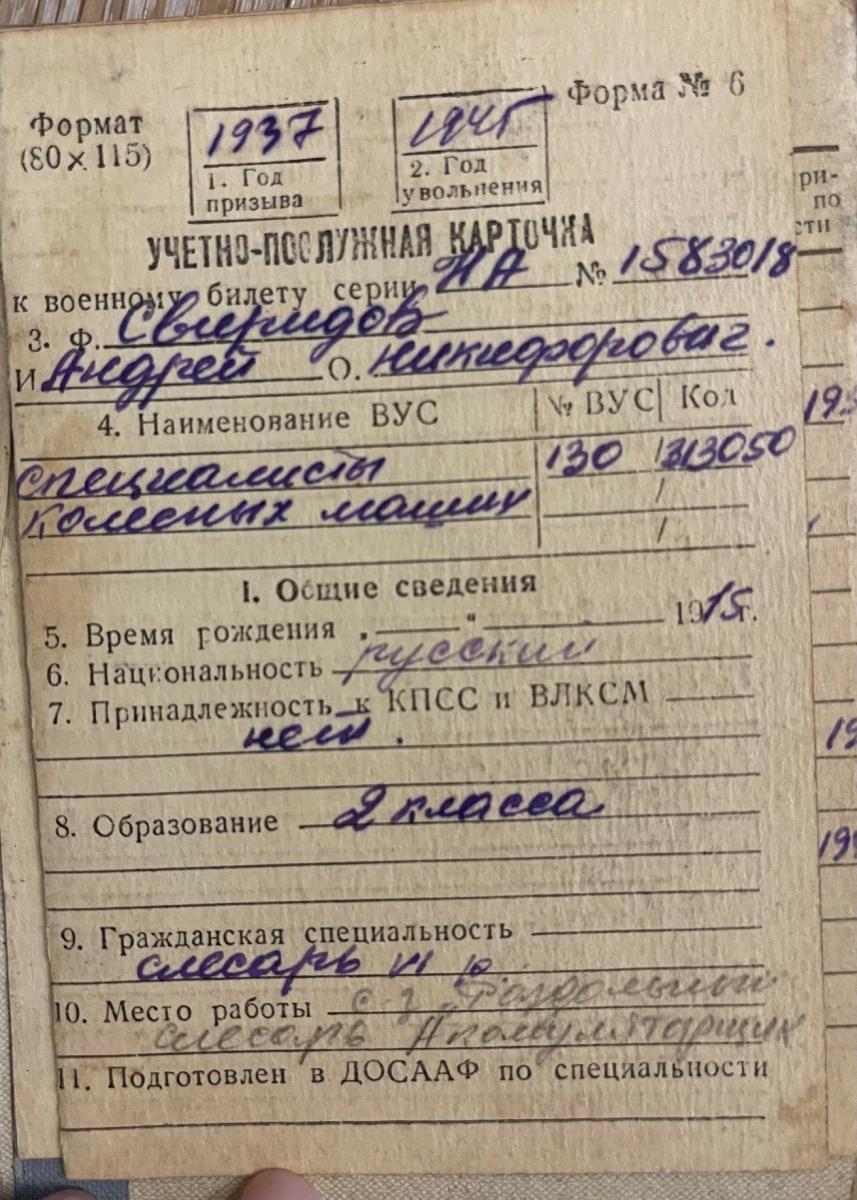 Форма № 6
Формат
(80 х 115)
1937
1. Год
призыва
1945
2. Год
увольнения
УЧЕТНО-ПОСЛУЖНАЯ КАРТОЧКА
к военному билету серии НА № 1583018
3. Ф. Свиридов
И. Андрей О. Никифорович.
4. Наименование ВУС № ВУС Код
специалисты 130 313050
колесных машин
1. Общие сведения
5. Время рождения „ “ 1915г.
6. Национальность русский
7. Принадлежность к КПСС и ВЛКСМ
нет.
8. Образование 2 класса
9. Гражданская специальность
слесарь VI р.
10. Место работы
слесарь Акомуляторщик
11. Подготовлен в ДОСААФ по специальности
ри-
по
сти